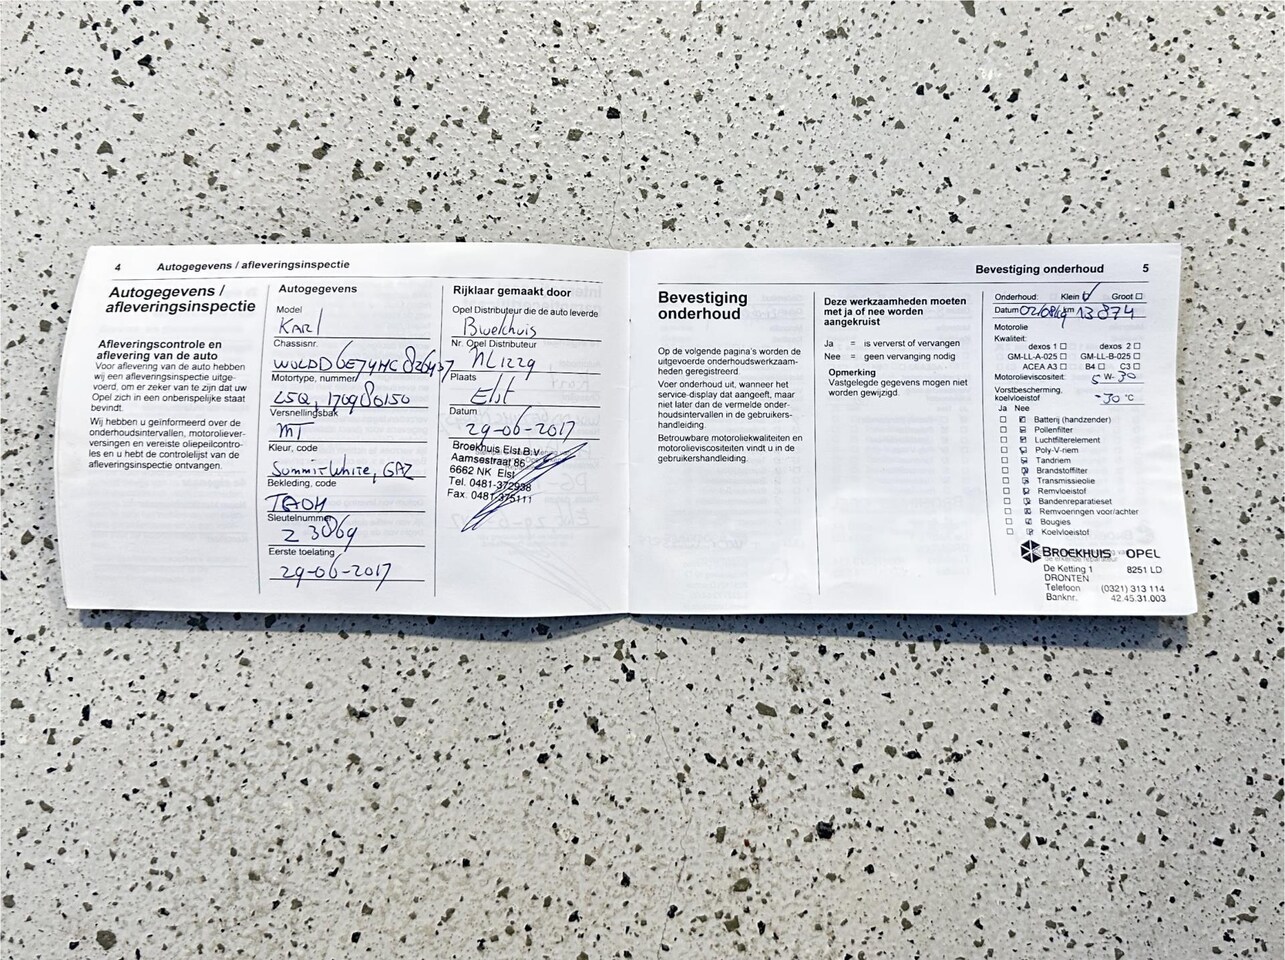 4 Autogegevens / afleveringsinspectie
Autogegevens /
afleveringsinspectie
Afleveringscontrole en
aflevering van de auto
Voor aflevering van de auto hebben
wij een afleveringsinspectie uitge-
voerd, om er zeker van te zijn dat uw
Opel zich in een onberispelijke staat
bevindt.
Wij hebben u geïnformeerd over de
onderhoudsintervallen, motoroliever-
versingen en vereiste oliepeilcontro-
les en u hebt de controlelijst van de
afleveringsinspectie ontvangen.
Autogegevens
Model
KARL
Chassisnr.
Motortype, nummer
Versnellingsbak
MT
Kleur, code
Summit White, GAZ
Bekleding, code
Sleutelnummer
23069
Eerste toelating
29-06-2017
Rijklaar gemaakt door
Opel Distributeur die de auto leverde
Broekhuis
Nr. Opel Distributeur
NL1229
Plaats
Elst
Datum
29-06-2017
Broekhuis Elst B.V.
Aamsestraat 86
6662 NK Elst
Tel. 0481-372938
Fax. 0481-375111
Bevestiging onderhoud 5
Bevestiging
onderhoud
Op de volgende pagina's worden de
uitgevoerde onderhoudswerkzaam-
heden geregistreerd.
Voer onderhoud uit, wanneer het
service-display dat aangeeft, maar
niet later dan de vermelde onder-
houdsintervallen in de gebruikers-
handleiding.
Betrouwbare motoroliekwaliteiten en
motorolieviscositeiten vindt u in de
gebruikershandleiding.
Deze werkzaamheden moeten
met ja of nee worden
aangekruist
Ja = is ververst of vervangen
Nee = geen vervanging nodig
Opmerking
Vastgelegde gegevens mogen niet
worden gewijzigd.
Onderhoud: Klein Groot
Datum km 13874
Motorolie
Kwaliteit:
dexos 1 dexos 2
GM-LL-A-025 GM-LL-B-025
ACEA A3 B4 C3
Motorolieviscositeit: 5 W- 30
Vorstbescherming,
koelvloeistof -30 °C
Ja Nee
Batterij (handzender)
Pollenfilter
Luchtfilterelement
Poly-V-riem
Tandriem
Brandstoffilter
Transmissieolie
Remvloeistof
Bandenreparatieset
Remvoeringen voor/achter
Bougies
Koelvloeistof
BROEKHUIS OPEL
De Ketting 1 8251 LD
DRONTEN
Telefoon (0321) 313 114
Banknr. 42.45.31.003